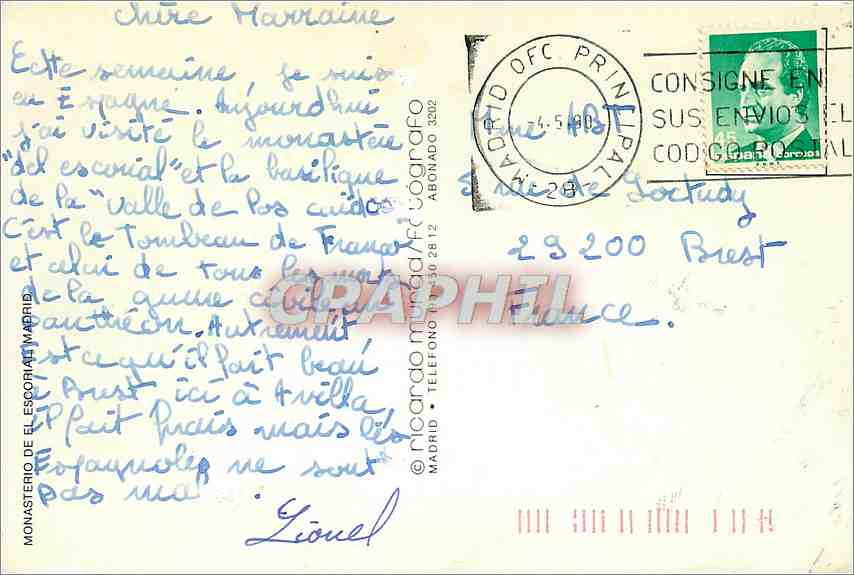 Chère Marraine
Cette semaine, je suis
en Espagne. Aujourd'hui
j'ai visité le monastère
"del escorial" et la basilique
de la "Valle de los caidos"
C'est le Tombeau de Franco
et celui de tous les morts
de la guerre civile un
panthéon. Autrement,
est ce qu'il fait beau
à Brest ici à Avilla,
il fait frais mais les
Espagnoles ne sont
pas mal.
Lionel
MONASTERIO DE EL ESCORIAL (MADRID)
© ricardo murad/fotógrafo
MADRID • TELEFONO 450 28 12 ABONADO 3202
MADRID OFC. PRINCIPAL
-4-5-90
28
CONSIGNE EN
SUS ENVIOS EL
CODIGO POSTAL
45
España correos
Mme
rue de Loctudy
29200 Brest
France.
CRAPHIL